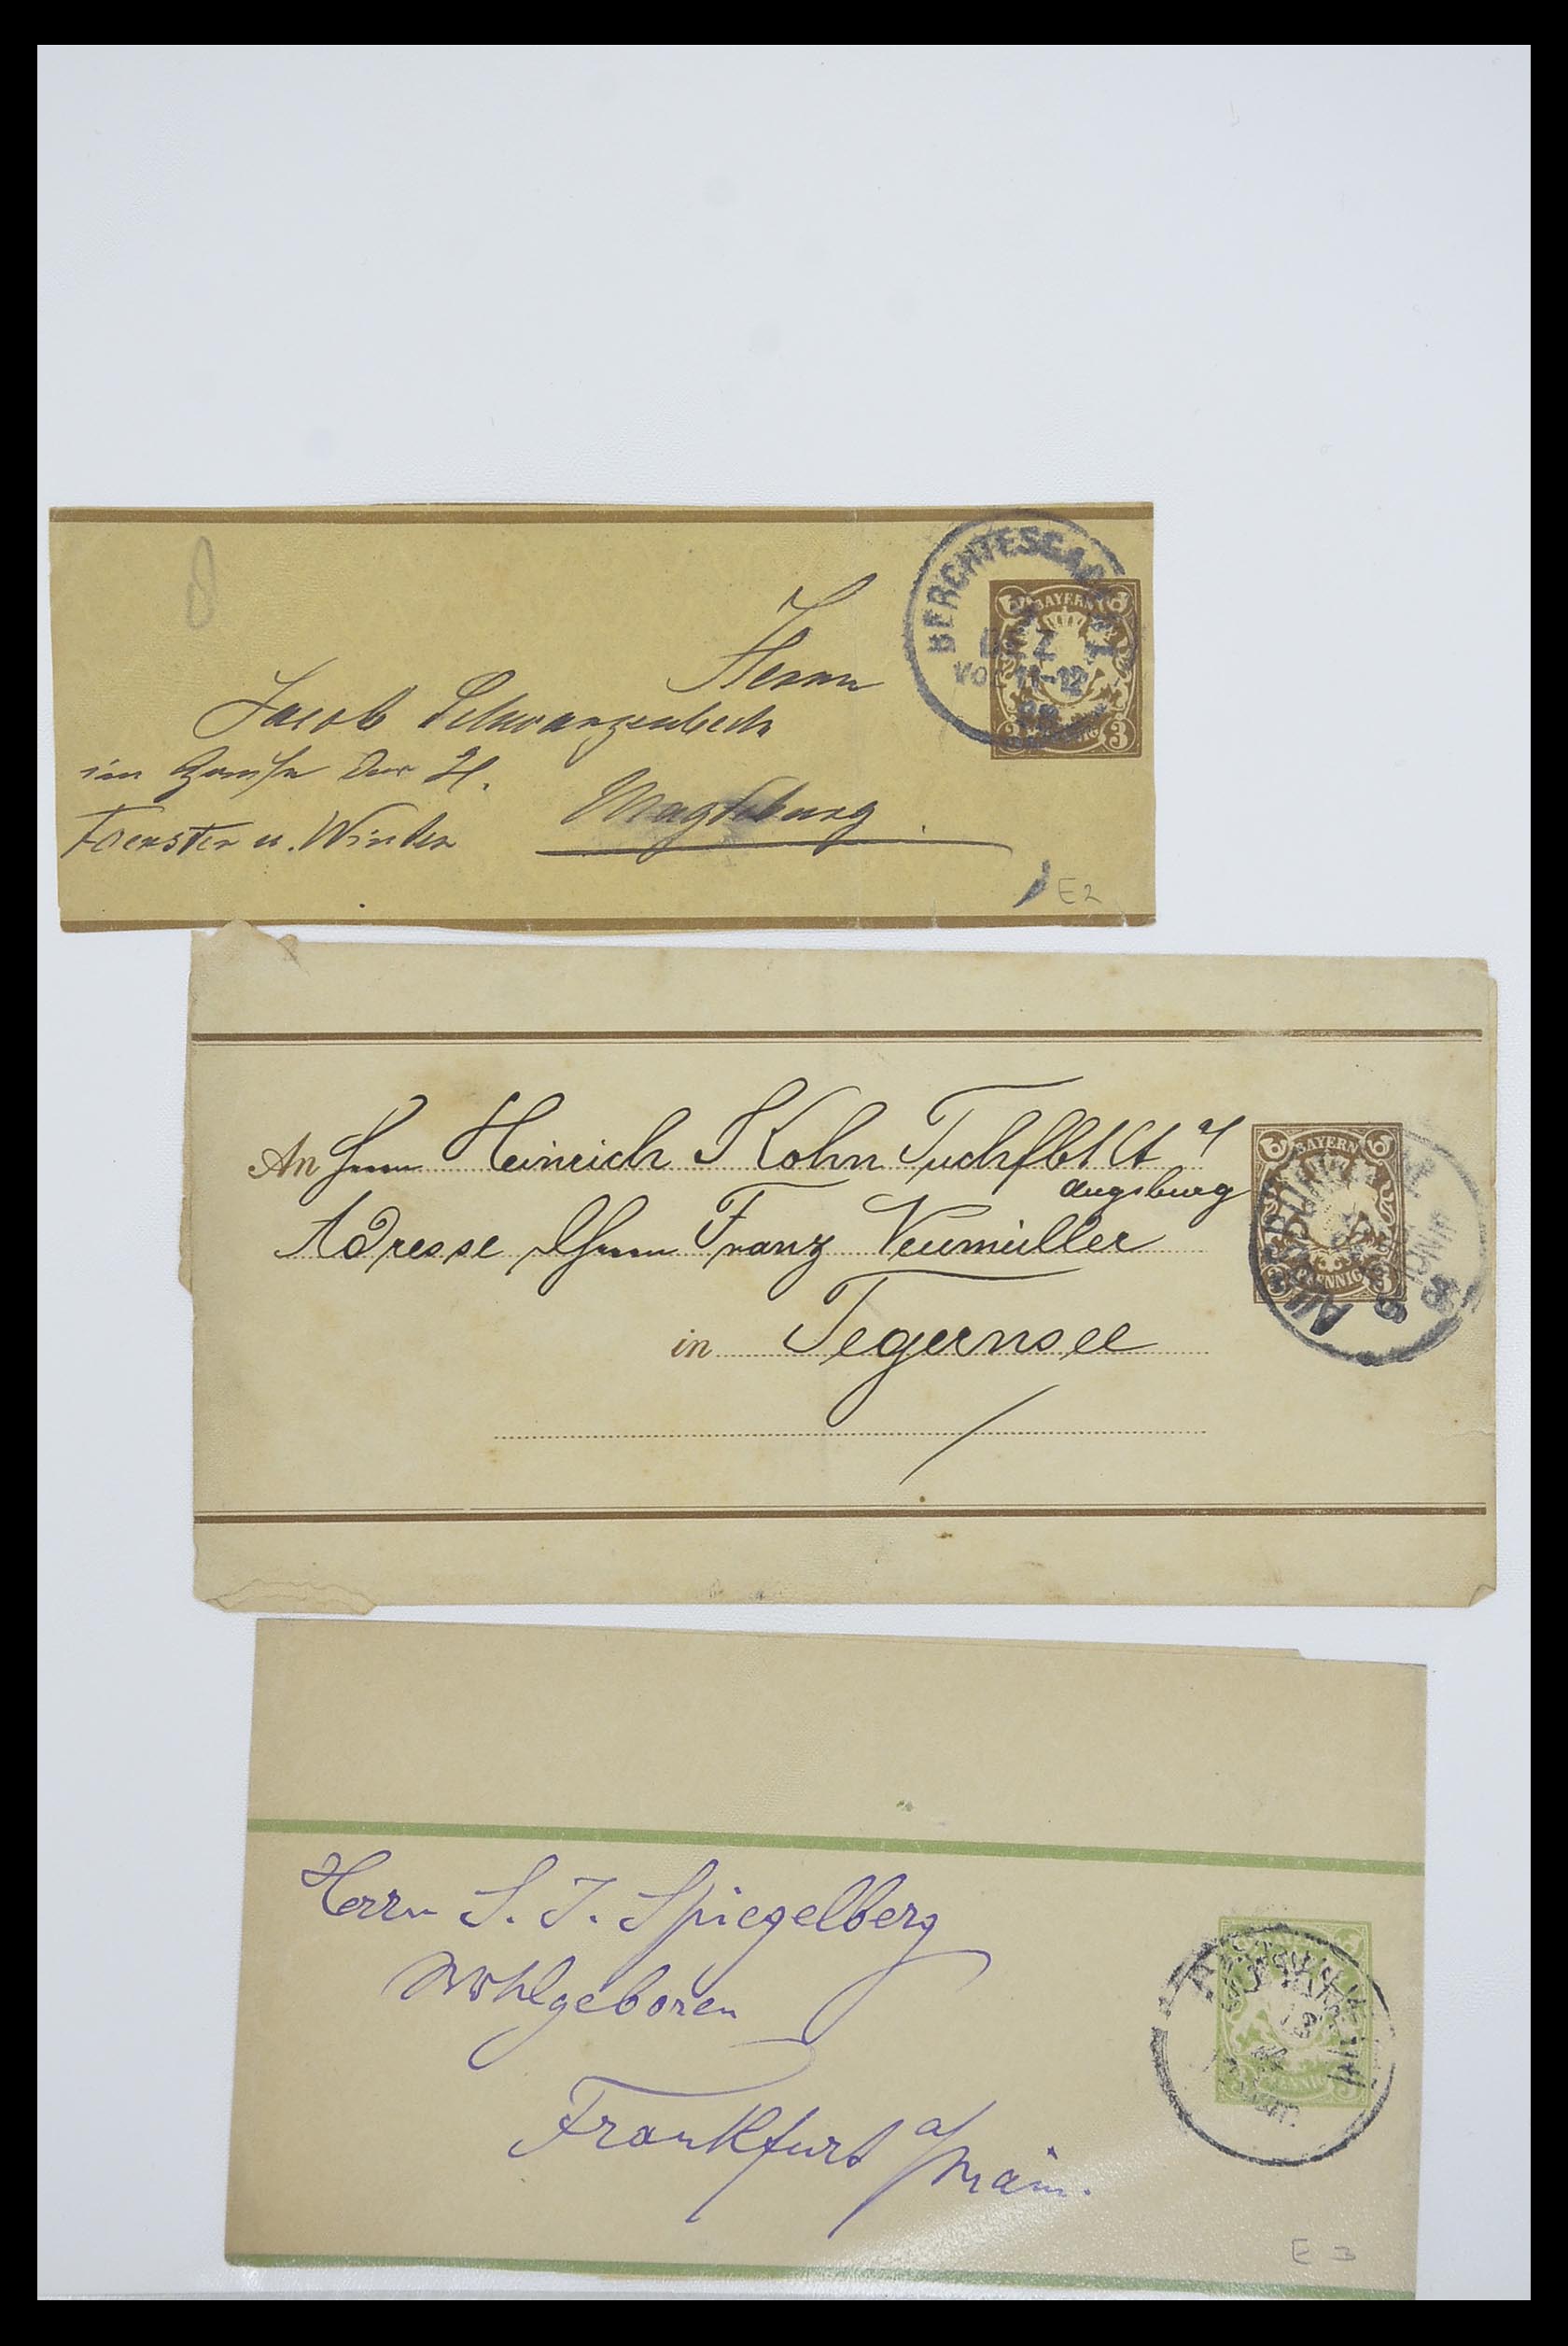 8
BERCHTESGA
DEZ
Vor 11-12
BAYERN
3 PFENNIG 3
Herrn
Jacob Schwarzenbeck
im Hause der H.
Foerster u. Winter
Magdeburg
E2
An Herrn Heinrich Kohn Tuchfbkt
Augsburg
Adresse Herrn Franz Neumüller
in Tegernsee
BAYERN
3 PFENNIG 3
Herrn S. J. Spiegelberg
Wohlgeboren
Frankfurt a/Main.
PFENNIG
E 3